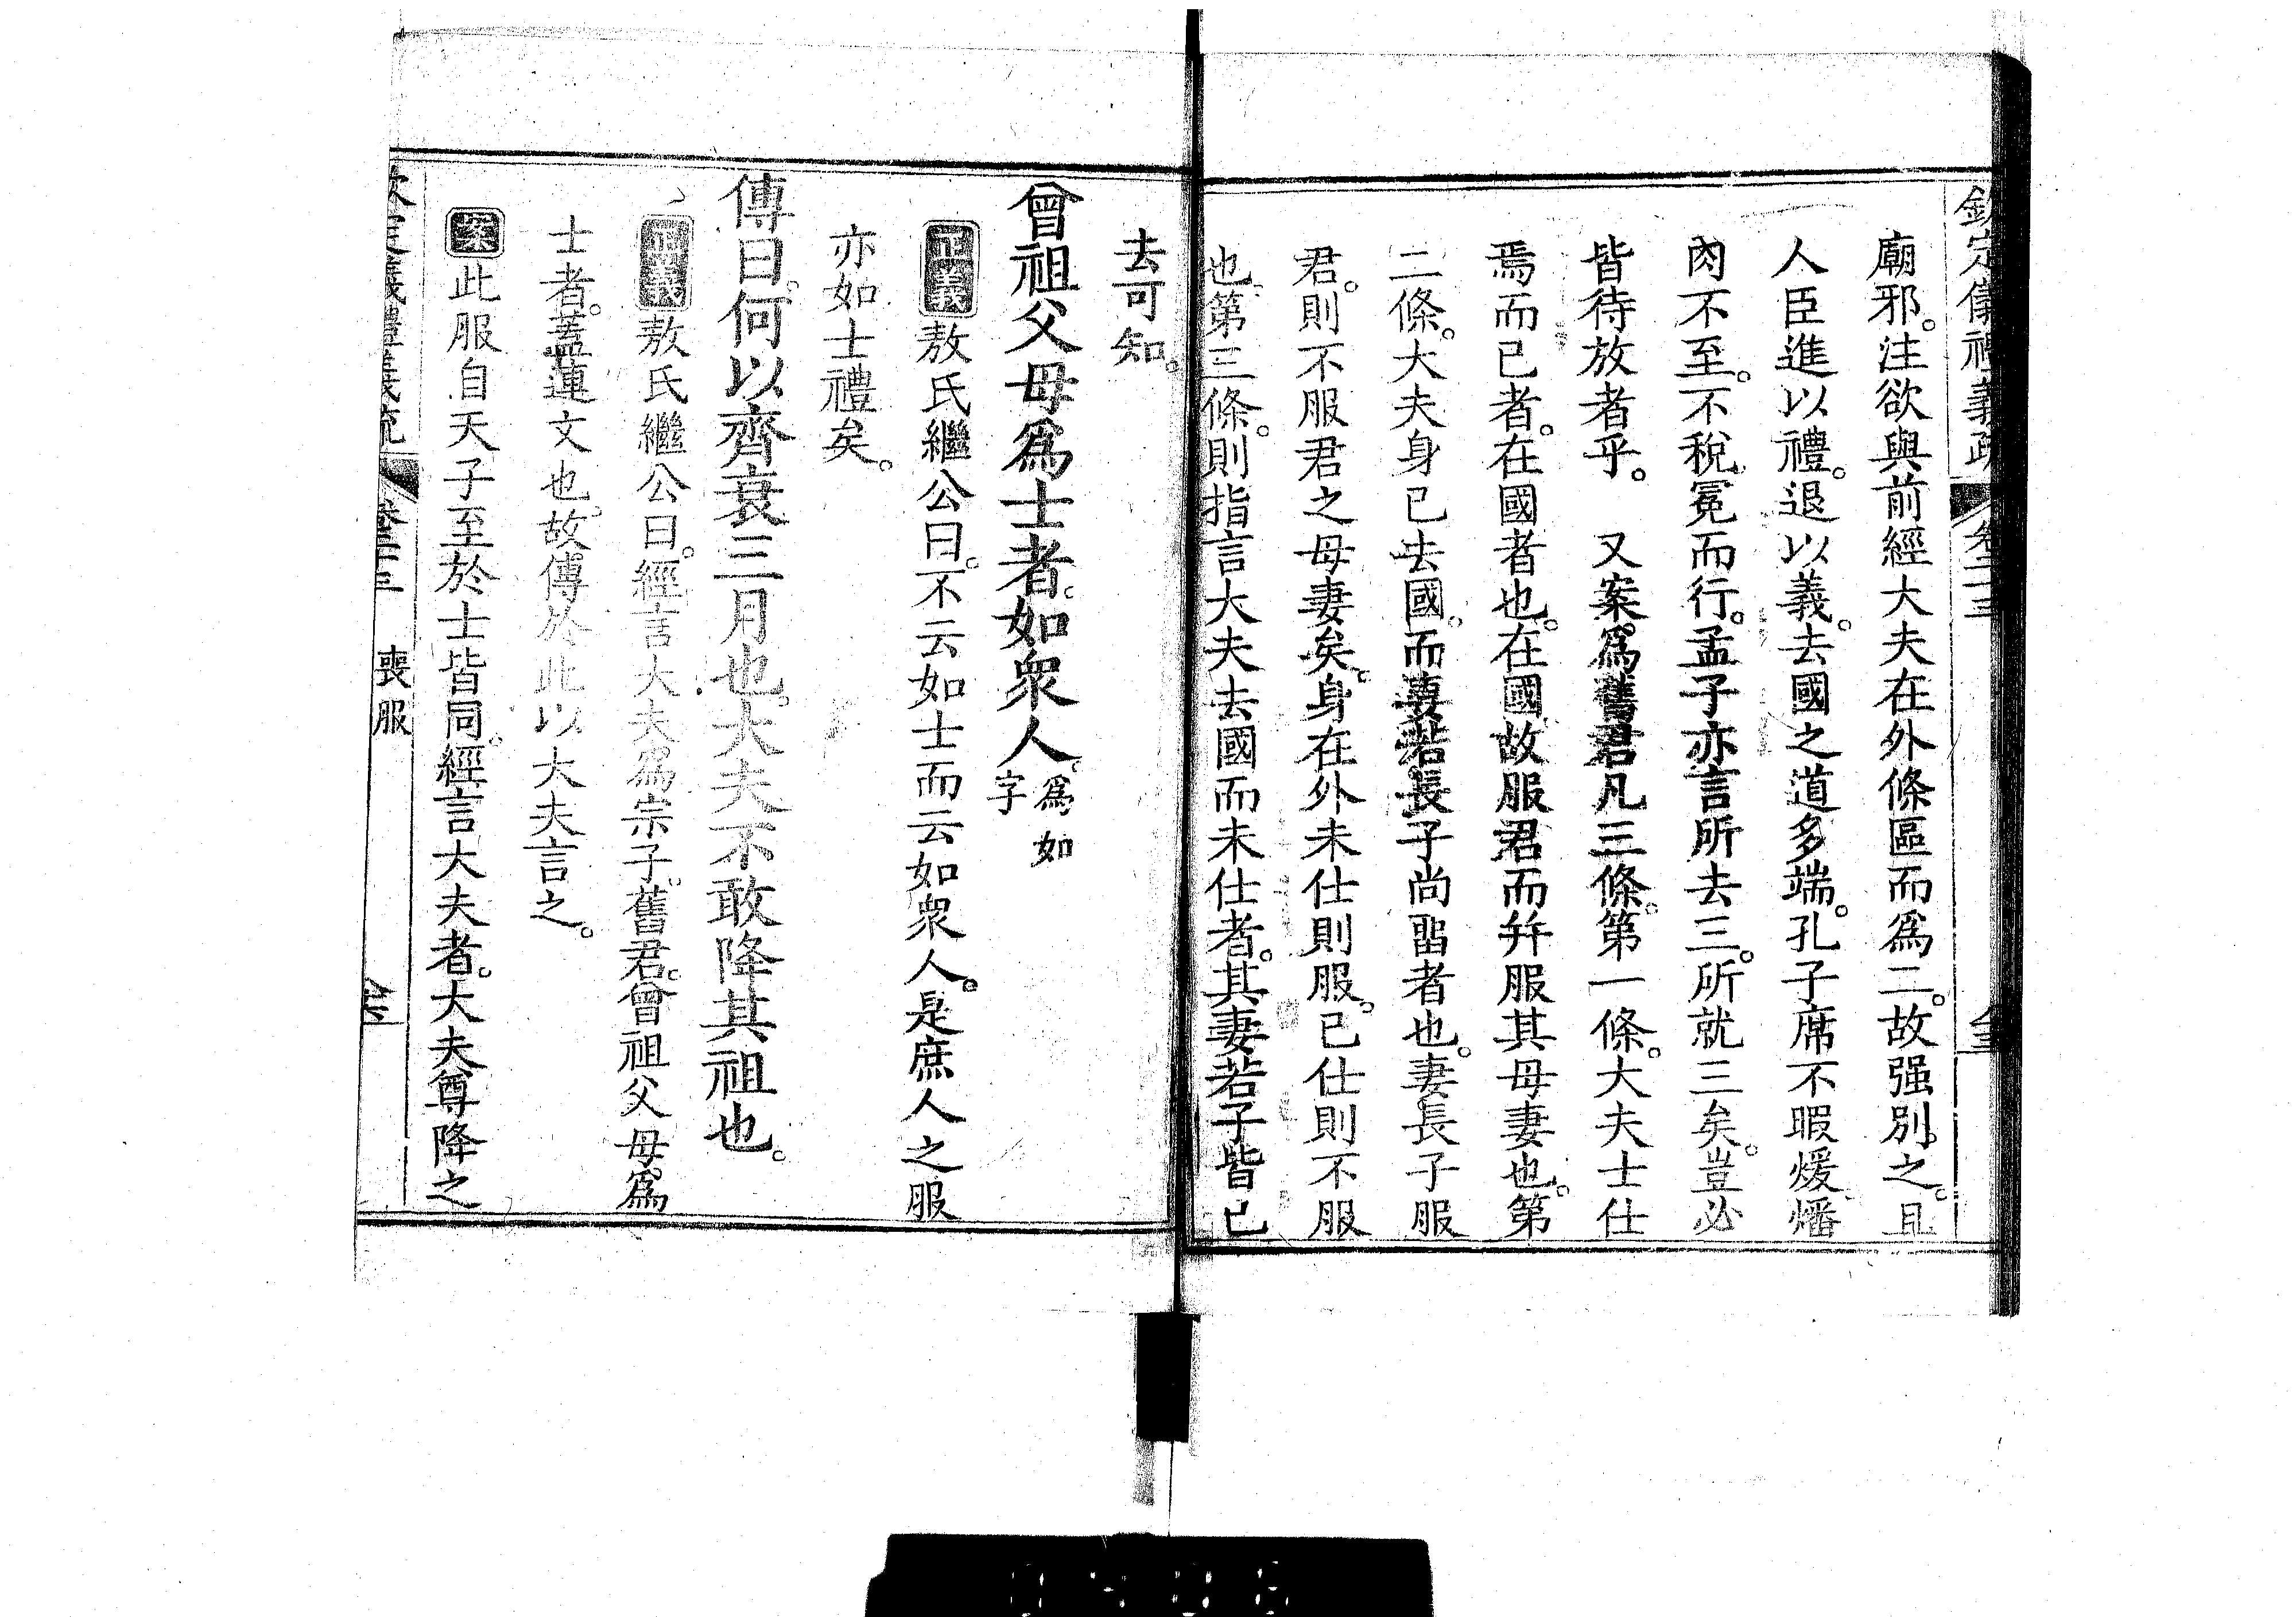 欽定儀禮義疏 卷二十三
廟邪。注欲與前經大夫在外條區而爲二。故强別之。且
人臣進以禮。退以義。去國之道多端。孔子席不暇煖。燔
肉不至。不稅冕而行。孟子亦言所去三。所就三矣。豈必
皆待放者乎。　又案。爲舊君凡三條。第一條。大夫士仕
焉而已者。在國者也。在國故服君而幷服其母妻也。第
二條。大夫身已去國。而妻若長子尚畱者也。妻長子服
君。則不服君之母妻矣。身在外未仕則服。已仕則不服
也。第三條。則指言大夫去國而未仕者。其妻若子皆已
去可知。
曾祖父母爲士者。如衆人。爲如字
正義敖氏繼公曰。不云如士而云如衆人。是庶人之服
亦如士禮矣。
傳曰。何以齊衰三月也。大夫不敢降其祖也。
正義敖氏繼公曰。經言大夫爲宗子。舊君。曾祖父母。爲
士者。蓋蓮文也。故傳於此以大夫言之。
案此服自天子至於士皆同。經言大夫者。大夫尊降之
欽定儀禮義疏 卷二十三 喪服